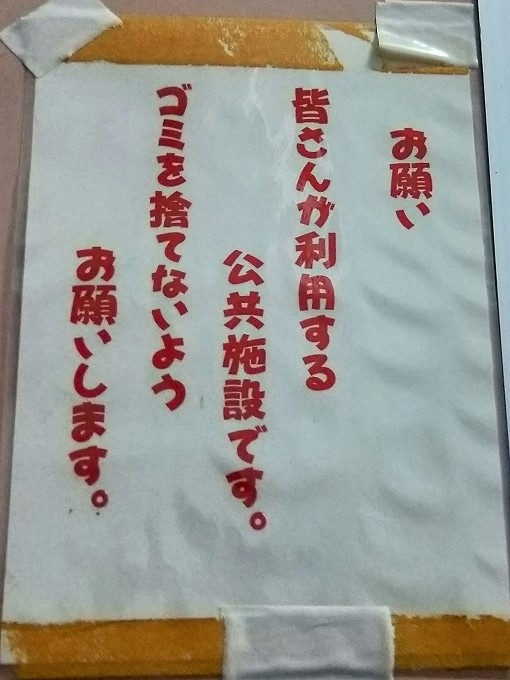 お願い
皆さんが利用する
公共施設です。
ゴミを捨てないよう
お願いします。